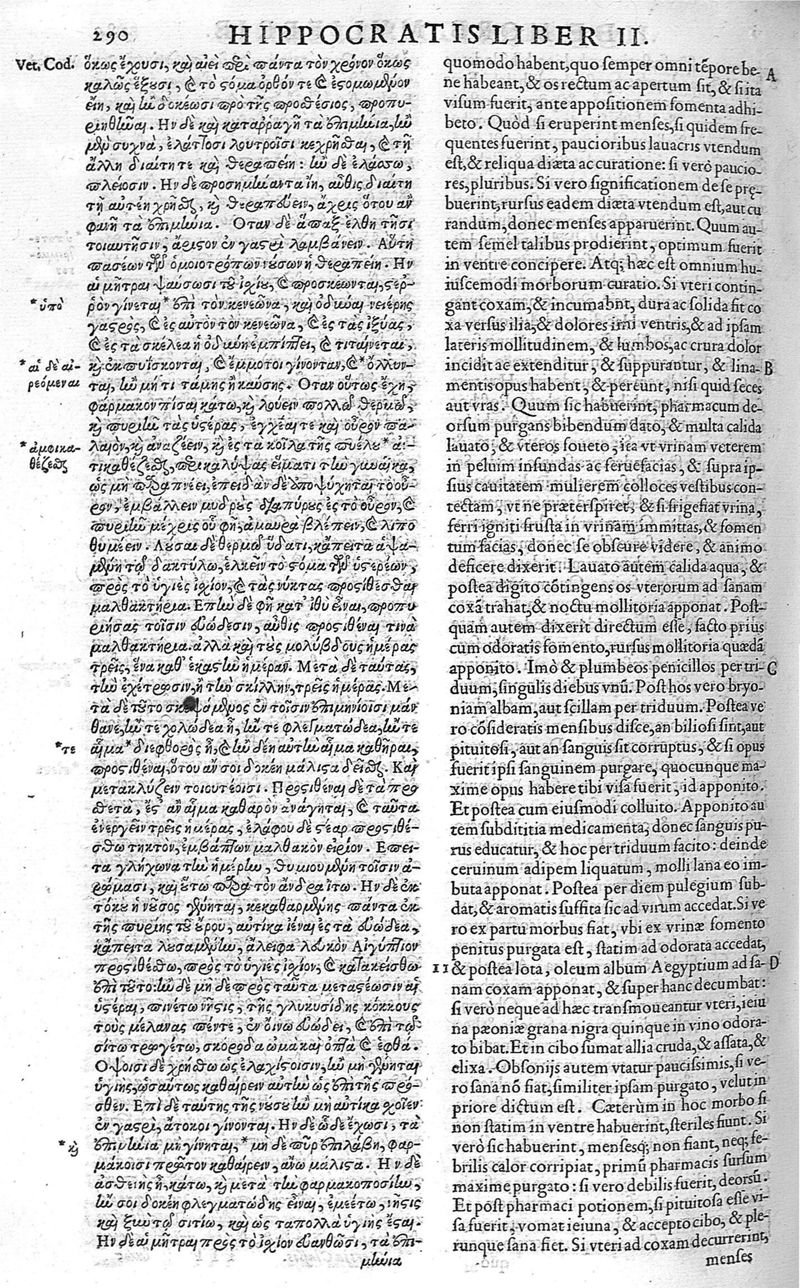 290 HIPPOCRATIS LIBER II.
Vet. Cod.
ὅκως ἔχουσι, καὶ αἰεὶ περὶ πάντα τὸν χρόνον ὅκως
καλῶς ἕξουσι, καὶ τὸ στόμα ὀρθόν τε καὶ ἐστομωμένον
εἴη, καὶ ἢν δοκέωσι πρὸ τῆς προσθέσιος, προπυ-
ριηθῆναι. Ἢν δὲ καὶ καταρραγῇ τὰ ἐπιμήνια, ἢν
μὲν συχνὰ, ἐλάττοσι λουτροῖσι κεχρῆσθαι, καὶ τῇ
ἄλλῃ διαίτῃ τε καὶ θεραπείῃ· ἢν δὲ ἐλάσσω,
πλείοσιν. Ἢν δὲ προσημήναντα ἴῃ, αὖθις διαίτῃ
τῇ αὐτέῃ χρῆσθαι, καὶ θεραπεύειν, ἄχρις ὅτου ἂν
φανῇ τὰ ἐπιμήνια. Ὅταν δὲ ἅπαξ ἔλθῃ τῇσι
τοιαύτῃσιν, ἄριστον ἐν γαστρὶ λαμβάνειν. Αὕτη
πασέων τῶν ὁμοιοτρόπων νούσων ἡ θεραπείη. Ἢν
αἱ μῆτραι ψαύσωσι τοῦ ἰσχίου, καὶ προσκέωνται, στερ-
*ὑπὸ
ρὸν γίνεται* ἐπὶ τὸν κενεῶνα, καὶ ὀδύναι νειέρης
γαστρὸς, καὶ ἐς αὐτὸν τὸν κενεῶνα, καὶ ἐς τὰς ἰξύας,
καὶ ἐς τὰ σκέλεα ἡ ὀδύνη ἐμπίπτει, καὶ τιταίνεται,
*αἱ δὲ αἱ-
ρεόμεναι
καὶ ἐκπυΐσκονται, καὶ ἔμμοτοι γίνονται, καὶ *ὄλλυν-
ται, ἢν μή τι τάμῃς ἢ καύσῃς. Ὅταν οὕτως ἔχῃ,
φάρμακον πῖσαι κάτω, καὶ λούειν πολλῷ θερμῷ,
καὶ πυριῆν τὰς ὑστέρας, ἐγχέαι τε καὶ οὖρον πα-
*ἀμφικα-
θέζεσθαι
λαιὸν, καὶ ἀναζέειν, καὶ ἐς τὰ κοῖλα τῆς πυέλου *ἀν-
τικαθέζεσθαι, περικαλύψας εἵματι τὴν γυναῖκα,
ὡς μὴ παραπνέῃ, ἐπειδὰν δὲ ἀποψύχηται τὸ οὖ-
ρον, ἐμβάλλειν μύδρους διαπύρους ἐς τὸ οὖρον, καὶ
πυριῆν μέχρις οὗ φῇ, ἀμαυρὰ βλέπειν, καὶ λιπο
θυμέειν. Λοῦσαι δὲ θερμῷ ὕδατι, κἄπειτα ἁψα-
μένη τῷ δακτύλῳ, ἕλκειν τὸ στόμα τῶν ὑστερέων,
πρὸς τὸ ὑγιὲς ἰσχίον, καὶ τὰς νύκτας προστίθεσθαι
μαλθακτήρια. Ἐπὴν δὲ φῇ κατ' ἰθὺ εἶναι, προπυ-
ριήσας τοῖσιν εὐώδεσιν, αὖθις προστιθέναι τινὰ
μαλθακτήρια. ἀλλὰ καὶ τοὺς μολύβδους ἡμέρας
τρεῖς, ἕνα καθ' ἑκάστην ἡμέραν. Μετὰ δὲ ταύτας,
τὴν ἐχέτρωσιν, ἢ τὴν σκίλλην, τρεῖς ἡμέρας. Με-
τὰ δὲ τοῦτο σκεψάμενος ἐν τοῖσιν ἐπιμηνίοισι μάν
θανε, ἤν τε χολώδεα ᾖ, ἤν τε φλεγματώδεα, ἤν τε
*τε
αἷμα* διεφθορὸς ᾖ, καὶ ἢν δέῃ αὐτὴν αἷμα καθῆραι,
προστιθέναι, ὅτου ἄν σοι δοκέῃ μάλιστα δεῖσθαι. Καὶ
μετακλύζειν τοιουτέοισι. Προστιθέναι δὲ τὰ προσ
θετὰ, ἔστ' ἂν αἷμα καθαρὸν ἀνάγηται, καὶ ταῦτα
ἐνεργεῖν τρεῖς ἡμέρας, ἐλάφου δὲ στέαρ προστιθέ-
σθω τηκτὸν, ἐμβάπτων μαλθακὸν εἴριον. Ἔπει-
τα γλήχωνα τὴν ἡμέρην, θυμιωμένη τοῖσιν ἀ-
ρώμασι, καὶ οὕτω παρὰ τὸν ἄνδρα ἴτω. Ἢν δὲ ἐκ
τόκου ἡ νοῦσος γένηται, κεκαθαρμένης πάντα ἐκ
τῆς πυρίης τοῦ οὔρου, αὐτίκα ἰέναι ἐς τὰ εὐώδεα,
κἄπειτα λουσαμένην, ἄλειφα λευκὸν Αἰγύπτιον
προστιθέσθω, πρὸς τὸ ὑγιὲς ἰσχίον, καὶ κατακείσθω
ἐπὶ τοῦτο· ἢν δὲ μηδὲ πρὸς ταῦτα μεταστέωσιν αἱ
ὑστέραι, πινέτω νῆστις, τῆς γλυκυσίδης κόκκους
τοὺς μέλανας πέντε, ἐν οἴνῳ εὐώδει, καὶ ἐπὶ τῷ
σίτῳ τρωγέτω, σκόροδα ὠμὰ καὶ ὀπτὰ καὶ ἑφθά.
Ὄψοισι δὲ χρήσθω ὡς ἐλαχίστοισιν, ἢν μὴ γένηται
ὑγιὴς, ὡσαύτως καθαίρειν αὐτὴν ὡς ἐπὶ τῆς πρό-
σθεν. Ἐπὶ δὲ ταύτης τῆς νούσου ἢν μὴ αὐτίκα σχοῖεν
ἐν γαστρὶ, ἄτοκοι γίνονται. Ἢν δὲ ὧδε ἔχωσι, τὰ
*καὶ
ἐπιμήνια μὴ γίνηται, *μὴ δὲ πῦρ ἐπιλάβῃ, φαρ-
μάκοισι πρῶτον καθαίρειν, ἄνω μάλιστα. Ἢν δὲ
ἀσθενὴς ᾖ, κάτω, καὶ μετὰ τὴν φαρμακοποσίην,
ἤν σοι δοκέῃ φλεγματώδης εἶναι, ἐμεέτω, νῆστις
καὶ ξὺν τῷ σιτίῳ, καὶ ὡς τὰ πολλὰ ὑγιὴς ἔσται.
Ἢν δὲ αἱ μῆτραι πρὸς τὸ ἰσχίον ἐνανθῶσι, τὰ ἐπι-
μήνια
quomodo habent, quo semper omni tẽpore be-
A
ne habeant, & os rectum ac apertum sit, & si ita
visum fuerit, ante appositionem fomenta adhi-
beto. Quòd si eruperint menses, si quidem fre-
quentes fuerint, paucioribus lauacris vtendum
est, & reliqua diæta ac curatione: si verò paucio-
res, pluribus. Si vero significationem de se pręe-
buerint, rursus eadem diæta vtendum est, aut cu
randum, donec menses apparuerint. Quum au-
tem semel talibus prodierint, optimum fuerit
in ventre concipere. Atq; hæc est omnium hu-
iuscemodi morborum curatio. Si vteri contin-
gant coxam, & incumabnt, dura ac solida fit co
xa versus ilia, & dolores imi ventris, & ad ipsam
lateris mollitudinem, & lumbos, ac crura dolor
incidit ac extenditur, & suppurantur, & lina-
B
mentis opus habent, & pereunt, nisi quid seces
aut vras. Quum sic habuerint, pharmacum de-
orsum purgans bibendum dato, & multa calida
lauato, & vteros foueto, ita vt vrinam veterem
in peluim infundas ac feruefacias, & supra ip-
sius cauitatem mulierem colloces vestibus con-
tectam, vt ne præterspiret, & si frigefiat vrina,
ferri igniti frusta in vrinam immittas, & fomen
tum facias, donec se obscure videre, & animo
deficere dixerit. Lauato autem calida aqua, &
postea digito cõtingens os vterorum ad sanam
coxã trahat, & noctu mollitoria apponat. Post-
quàm autem dixerit directum esse, facto prius
cum odoratis fomento, rursus mollitoria quædã
apponito. Imò & plumbeos penicillos per tri-
C
duum, singulis diebus vnũ. Post hos vero bryo-
niam albam, aut scillam per triduum. Postea ve
rò cõsideratis mensibus disce, an biliosi sint, aut
pituitosi, aut an sanguis sit corruptus, & si opus
fuerit ipsi sanguinem purgare, quocunque ma-
xime opus habere tibi visa fuerit, id apponito.
Et postea cum eiusmodi colluito. Apponito au
tem subdititia medicamenta, donec sanguis pu-
rus educatur, & hoc per triduum facito: deinde
ceruinum adipem liquatum, molli lana eo im-
buta apponat. Postea per diem pulegium sub-
dat, & aromatis suffita sic ad virum accedat. Si ve
ro ex partu morbus fiat, vbi ex vrinæ fomento
penitus purgata est, statim ad odorata accedat,
11 & postea lota, oleum album Aegyptium ad sa-
D
nam coxam apponat, & super hanc decumbat:
si verò neque ad hæc transmoueantur vteri, ieiu
na pæoniæ grana nigra quinque in vino odora-
to bibat. Et in cibo sumat allia cruda, & assata, &
elixa. Obsonijs autem vtatur paucissimis, si ve-
ro sana nõ fiat, similiter ipsam purgato, velut in
priore dictum est. Cæterùm in hoc morbo si
non statim in ventre habuerint, steriles fiunt. Si
verò sic habuerint, mensesq; non fiant, neq; fe-
brilis calor corripiat, primũ pharmacis sursum
maxime purgato: si vero debilis fuerit, deorsũ.
Et post pharmaci potionem, si pituitosa esse vi-
sa fuerit, vomat ieiuna, & accepto cibo, & ple-
runque sana fiet. Si vteri ad coxam decurrerint,
menses